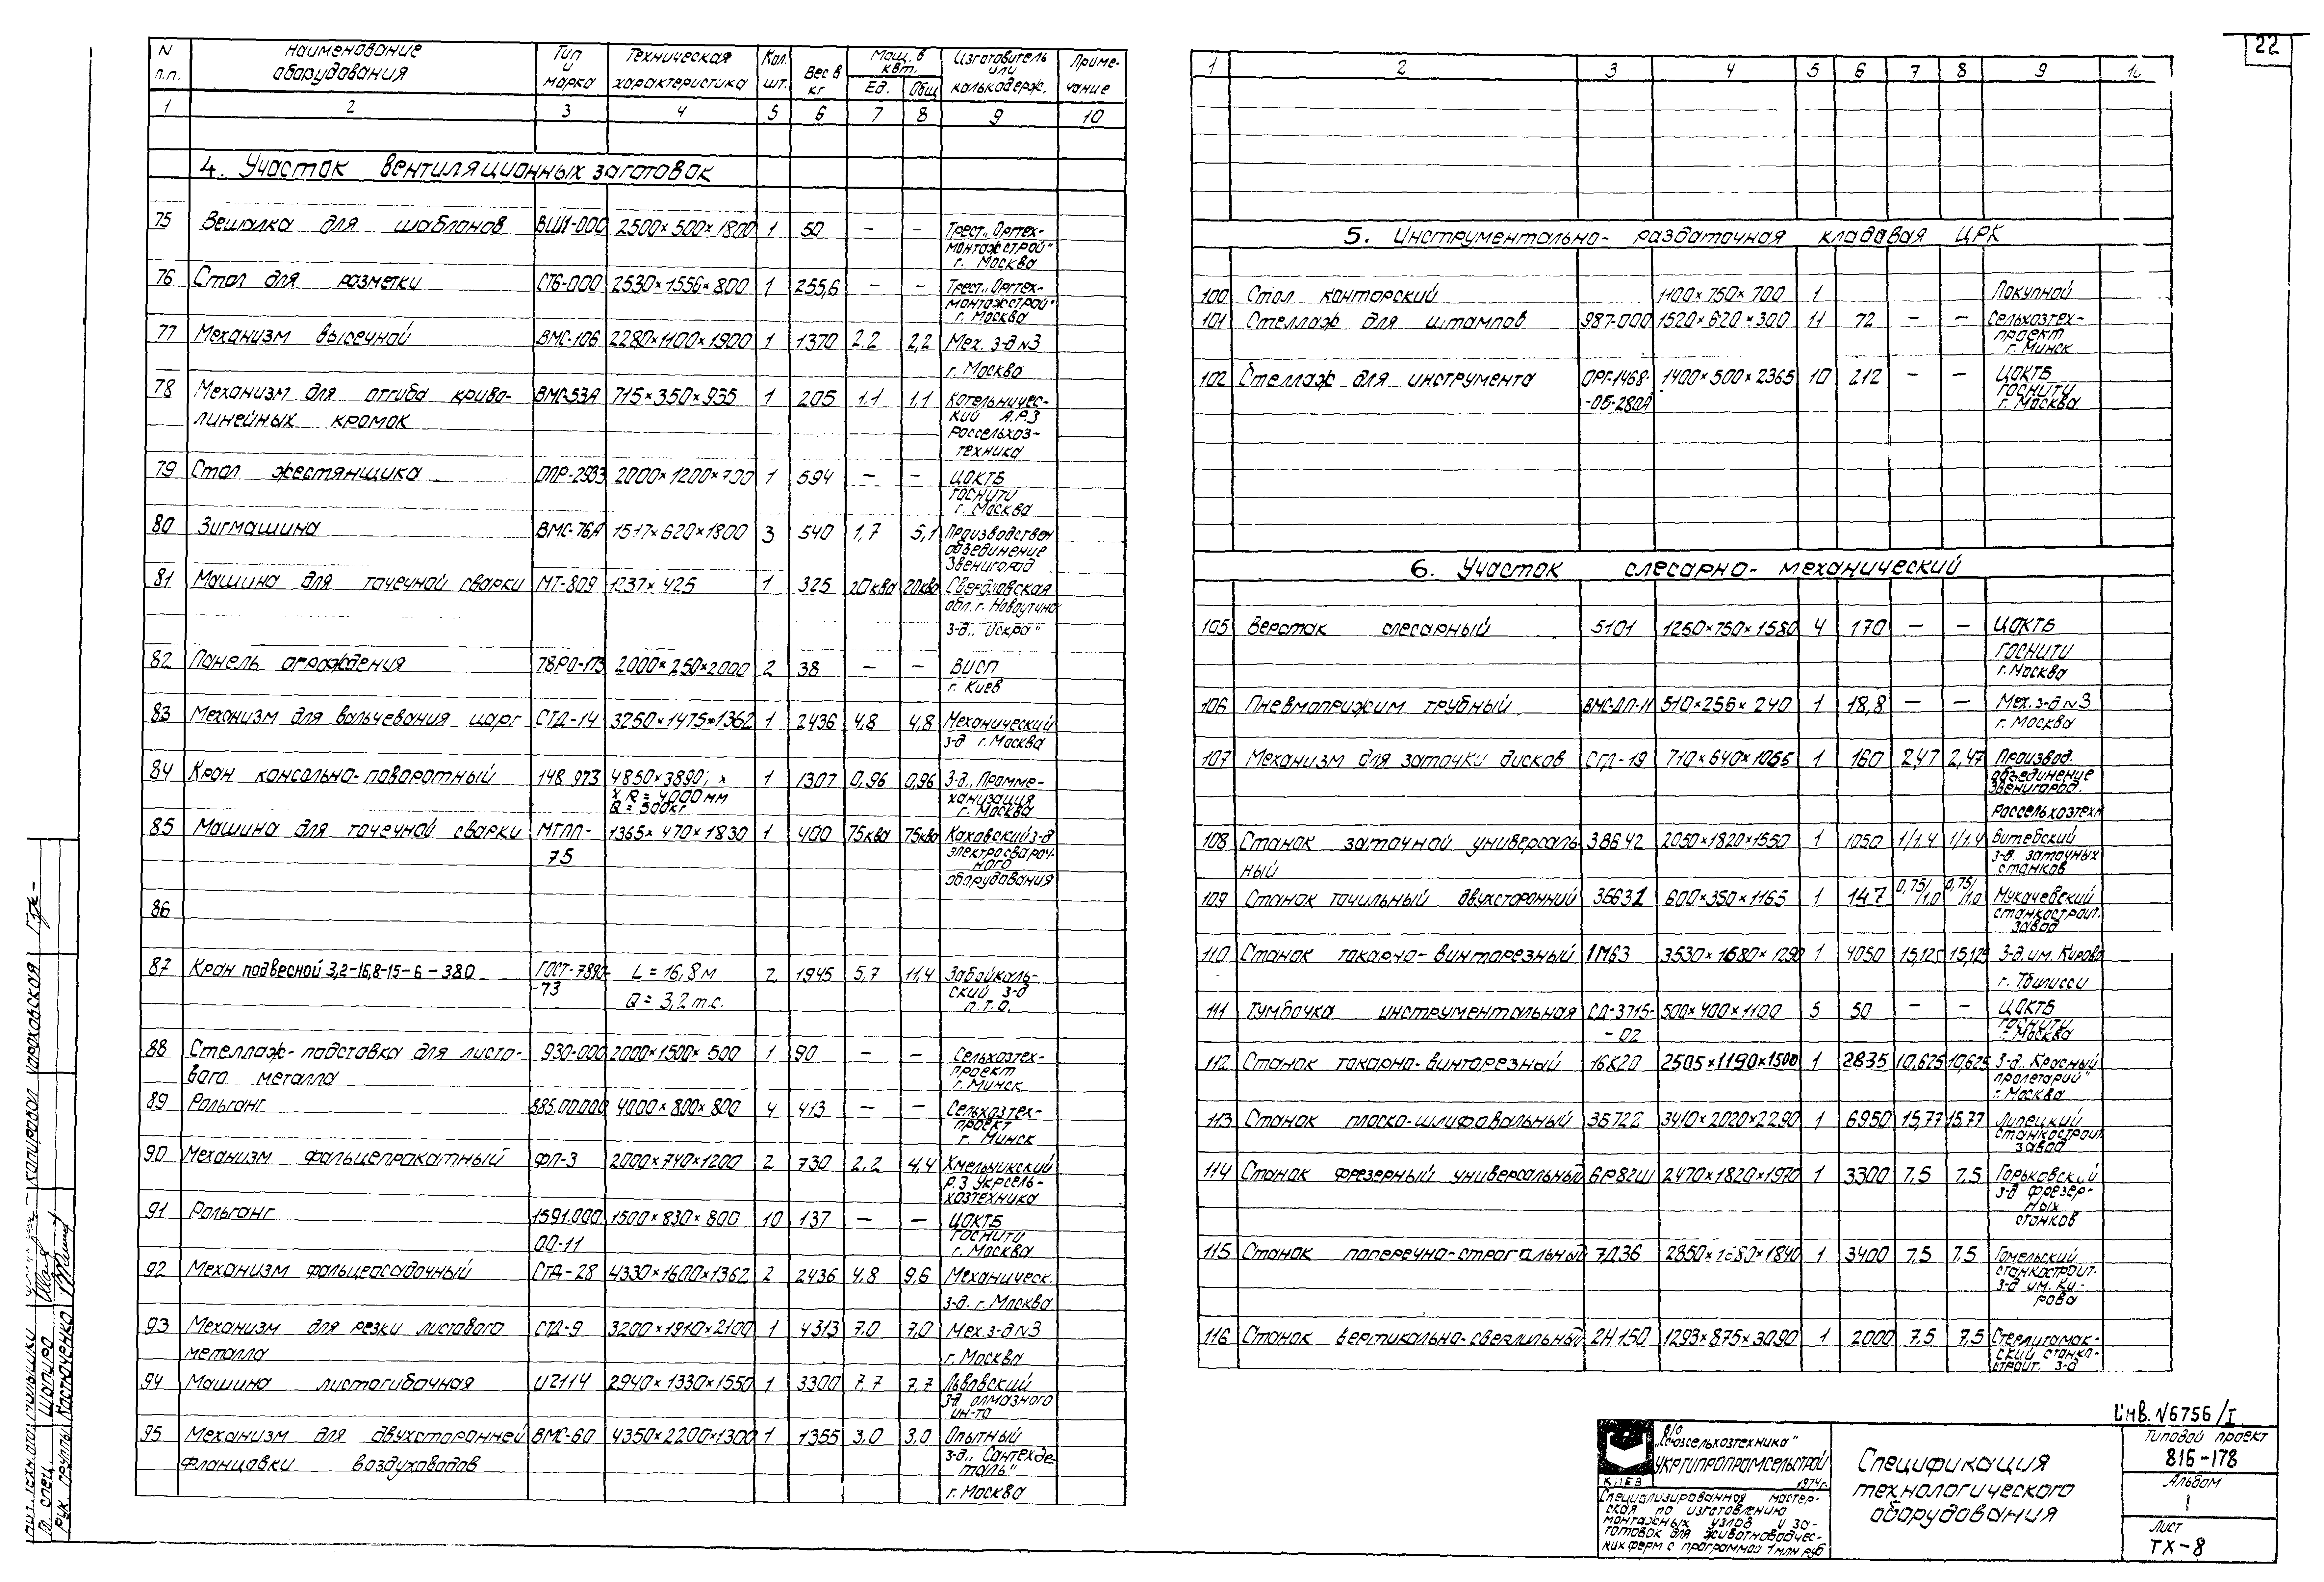 22
N п.п. Наименование оборудования Тип и марка Техническая характеристика Кол. шт. Вес в кг Мощ. в квт. Ед. Общ Изготовитель или калькодерж. Примечание
1 2 3 4 5 6 7 8 9 10
4. Участок вентиляционных заготовок
75 Вешалка для шаблонов ВШ1-000 2500×500×1800 1 50 — — Трест „Оргтех-
монтажстрой"
г. Москва
76 Стол для разметки СТ6-000 2530×1556×800 1 255,6 — — Трест „Оргтех-
монтажстрой"
г. Москва
77 Механизм высечной ВМС-106 2280×1100×1900 1 1370 2.2 2,2 Мех. з-д №3
г. Москва
78 Механизм для отгиба криво- ВМС-53А 715×350×935 1 205 1.1 1.1 Котельничес-
линейных кромок кий А.Р.З
Россельхоз-
техника
79 Стол жестянщика ОПР-2933 2000×1200×700 1 594 — — ЦОКТБ
ГОСНИТИ
г. Москва
80 Зигмашина ВМС-76А 1517×620×1800 3 540 1,7 5,1 Производствен
объединение
Звенигород
81 Машина для точечной сварки МТ-809 1237×425 1 325 20ква 20ква Свердловская
обл. г. Новоуткино
з-д „Искра"
82 Панель ограждения 78РО-173 2000×250×2000 2 38 — — ВИСП
г. Киев
83 Механизм для вальцевания царг СТД-14 3250×1475×1362 1 2436 4.8 4,8 Механический
з-д г. Москва
84 Кран консольно-поворотный 148 973 4850×3890; × 1 1307 0.96 0,96 З-д „Промме-
× R = 4000 мм ханизация
Q = 500кг г. Москва
85 Машина для точечной сварки МТПП- 1365×470×1830 1 400 75ква 75ква Каховский з-д
75 электросвароч-
ного
оборудования
86
87 Кран подвесной 3,2-16,8-15-6-380 ГОСТ-7890- L = 16,8 м 2 1945 5,7 11,4 Забайкаль-
-73 Q = 3,2 т.с. ский з-д
П.Т.О.
88 Стеллаж-подставка для листо- 930-000 2000×1500×500 1 90 — — Сельхозтех-
вого металла проект
г. Минск
89 Рольганг 885.00.000 4000×800×800 4 413 — — Сельхозтех-
проект
г. Минск
90 Механизм фальцепрокатный ФП-3 2000×740×1200 2 730 2.2 4.4 Хмельникский
Р.З Укрсель-
хозтехника
91 Рольганг 1591.000 1500×830×800 10 137 — — ЦОКТБ
00-11 ГОСНИТИ
г. Москва
92 Механизм фальцеосадочный СТД-28 4330×1600×1362 2 2436 4.8 9,6 Механическ.
з-д. г. Москва
93 Механизм для резки листового СТД-9 3200×1910×2100 1 4313 7.0 7.0 Мех. з-д №3
металла г. Москва
94 Машина листогибочная И2114 2940×1330×1550 1 3300 7,7 7,7 Львовский
з-д алмазного
ин-та
95 Механизм для двухсторонней ВМС-60 4350×2200×1300 1 1355 3.0 3,0 Опытный
фланцовки воздуховодов з-д „Сантехде-
таль"
г. Москва
1 2 3 4 5 6 7 8 9 10
5. Инструментально-раздаточная кладовая ЦРК
100 Стол конторский 1100×750×700 1 Покупной
101 Стеллаж для штампов 987-000 1520×620×300 11 72 — — Сельхозтех-
проект
г. Минск
102 Стеллаж для инструмента ОРГ-1468- 1400×500×2365 10 212 — — ЦОКТБ
-06-280А ГОСНИТИ
г. Москва
6. Участок слесарно-механический
105 Верстак слесарный 5101 1250×750×1580 4 170 — — ЦОКТБ
ГОСНИТИ
г. Москва
106 Пневмоприжим трубный ВМС-ДП-11 510×256×240 1 18,8 — — Мех. з-д №3
г. Москва
107 Механизм для заточки дисков СТД-19 710×640×1065 1 160 2,47 2,47 Производ.
объединение
Звенигород.
Россельхозтехн
108 Станок заточной универсаль 3В642 2050×1820×1550 1 1050 1/1.4 1/1.4 Витебский
ный з-д. заточных
станков
109 Станок точильный двухсторонний 3Б631 600×350×1165 1 147 0,75/1,0 0,75/1,0 Мукачевский
станкостроит.
завод
110 Станок токарно-винторезный 1М63 3530×1680×1290 1 4050 15,125 15,125 З-д. им. Кирова
г. Тбилисси
111 Тумбочка инструментальная СД-3715- 500×400×1100 5 50 — — ЦОКТБ
-02 ГОСНИТИ
г. Москва
112 Станок токарно-винторезный 16К20 2505×1190×1500 1 2835 10.625 10,625 З-д „Красный
пролетарий"
г. Москва
113 Станок плоско-шлифовальный 3Б722 3410×2020×2290 1 6950 15,77 15.77 Липецкий
станкостроит.
завод
114 Станок фрезерный универсальный 6Р82Ш 2470×1820×1970 1 3300 7.5 7.5 Горьковский
з-д фрезер-
ных
станков
115 Станок поперечно-строгальный 7Д36 2850×1680×1840 1 3400 7.5 7.5 Гомельский
станкостроит.
з-д им. Ки-
рова
116 Станок вертикально-сверлильный 2Н150 1293×875×3090 1 2000 7.5 7.5 Стерлитамак-
ский станко-
строит. з-д
Инв. №6756/I
В/О
„Союзсельхозтехника"
УКРГИПРОПРОМСЕЛЬСТРОЙ
КИЕВ 1974г.
Специализированная мастер-
ская по изготовлению
монтажных узлов и за-
готовок для животноводчес-
ких ферм с программой 1 млн руб
Спецификация
технологического
оборудования
Типовой проект
816-178
Альбом
I
Лист
ТХ-8
Гл. спец. Шапиро
Рук. группы Костюченко
Копировал